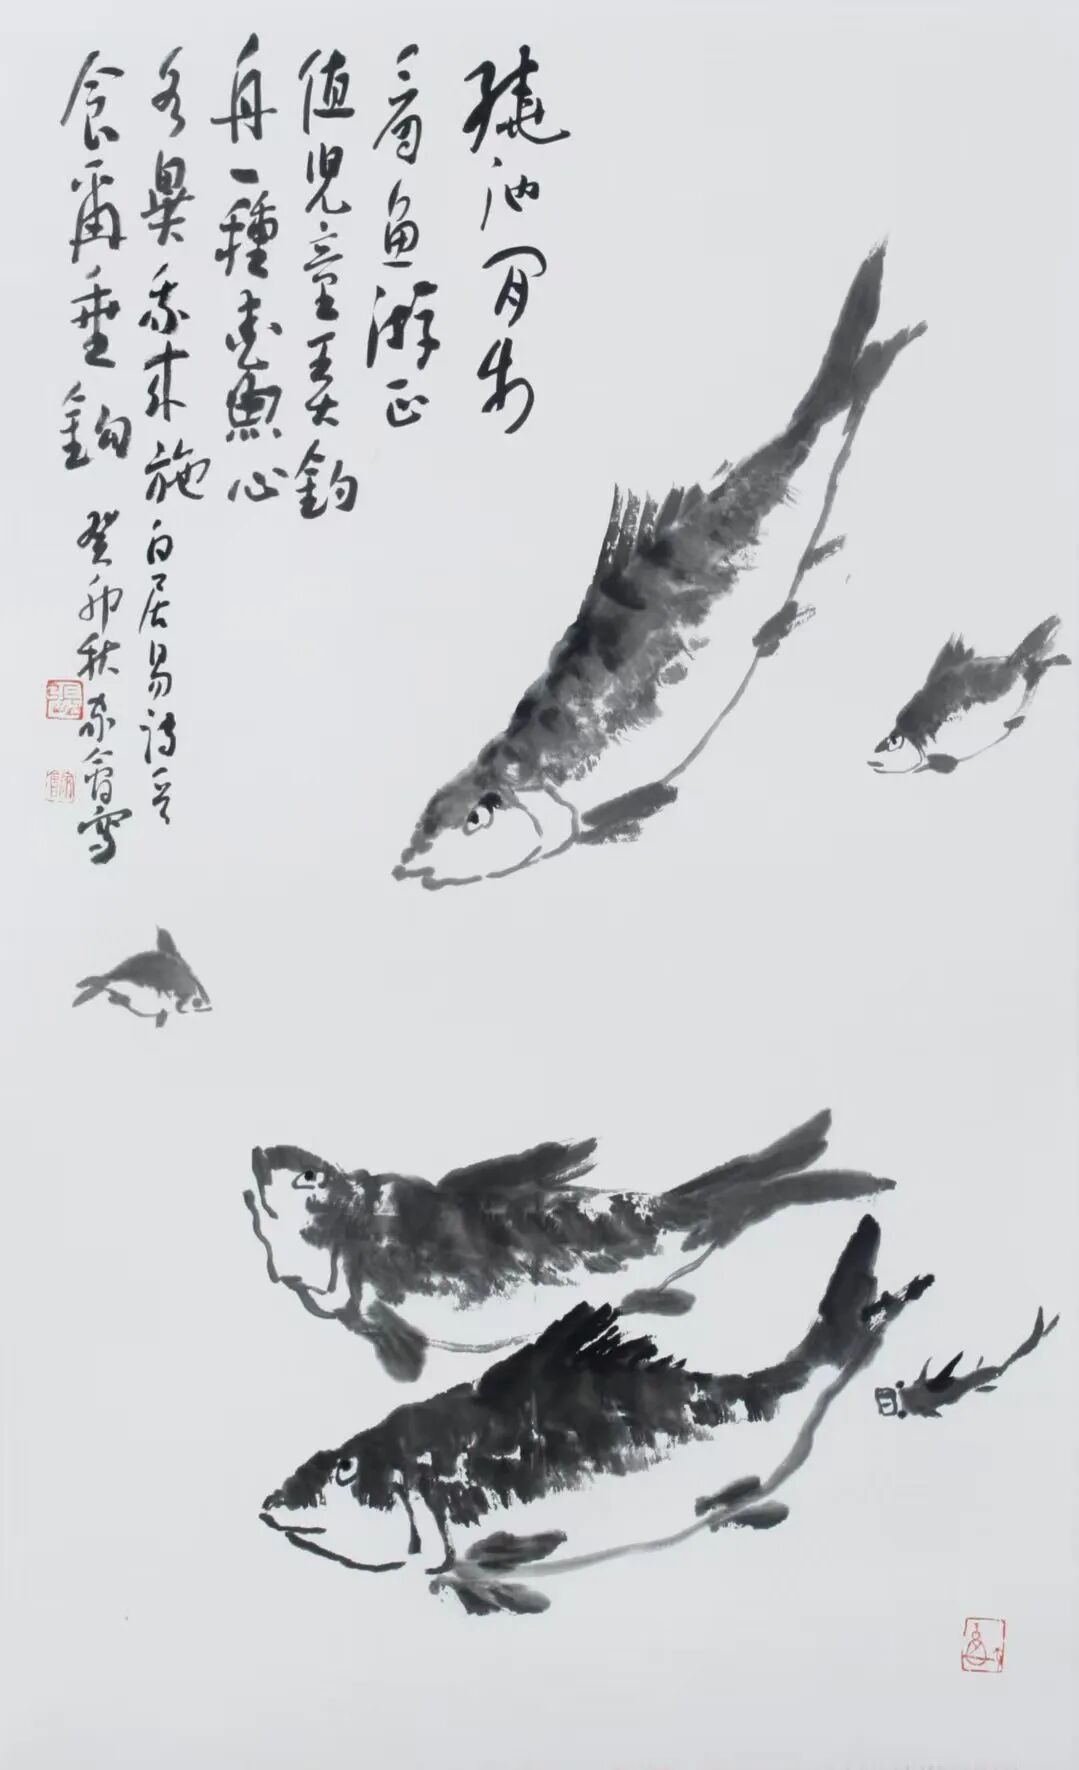 繞池閒步
看鱼游正
值兒童弄釣
舟一種愛魚心
各異我来施 白居易诗意
食爾垂鈎 癸卯秋家會寫
張